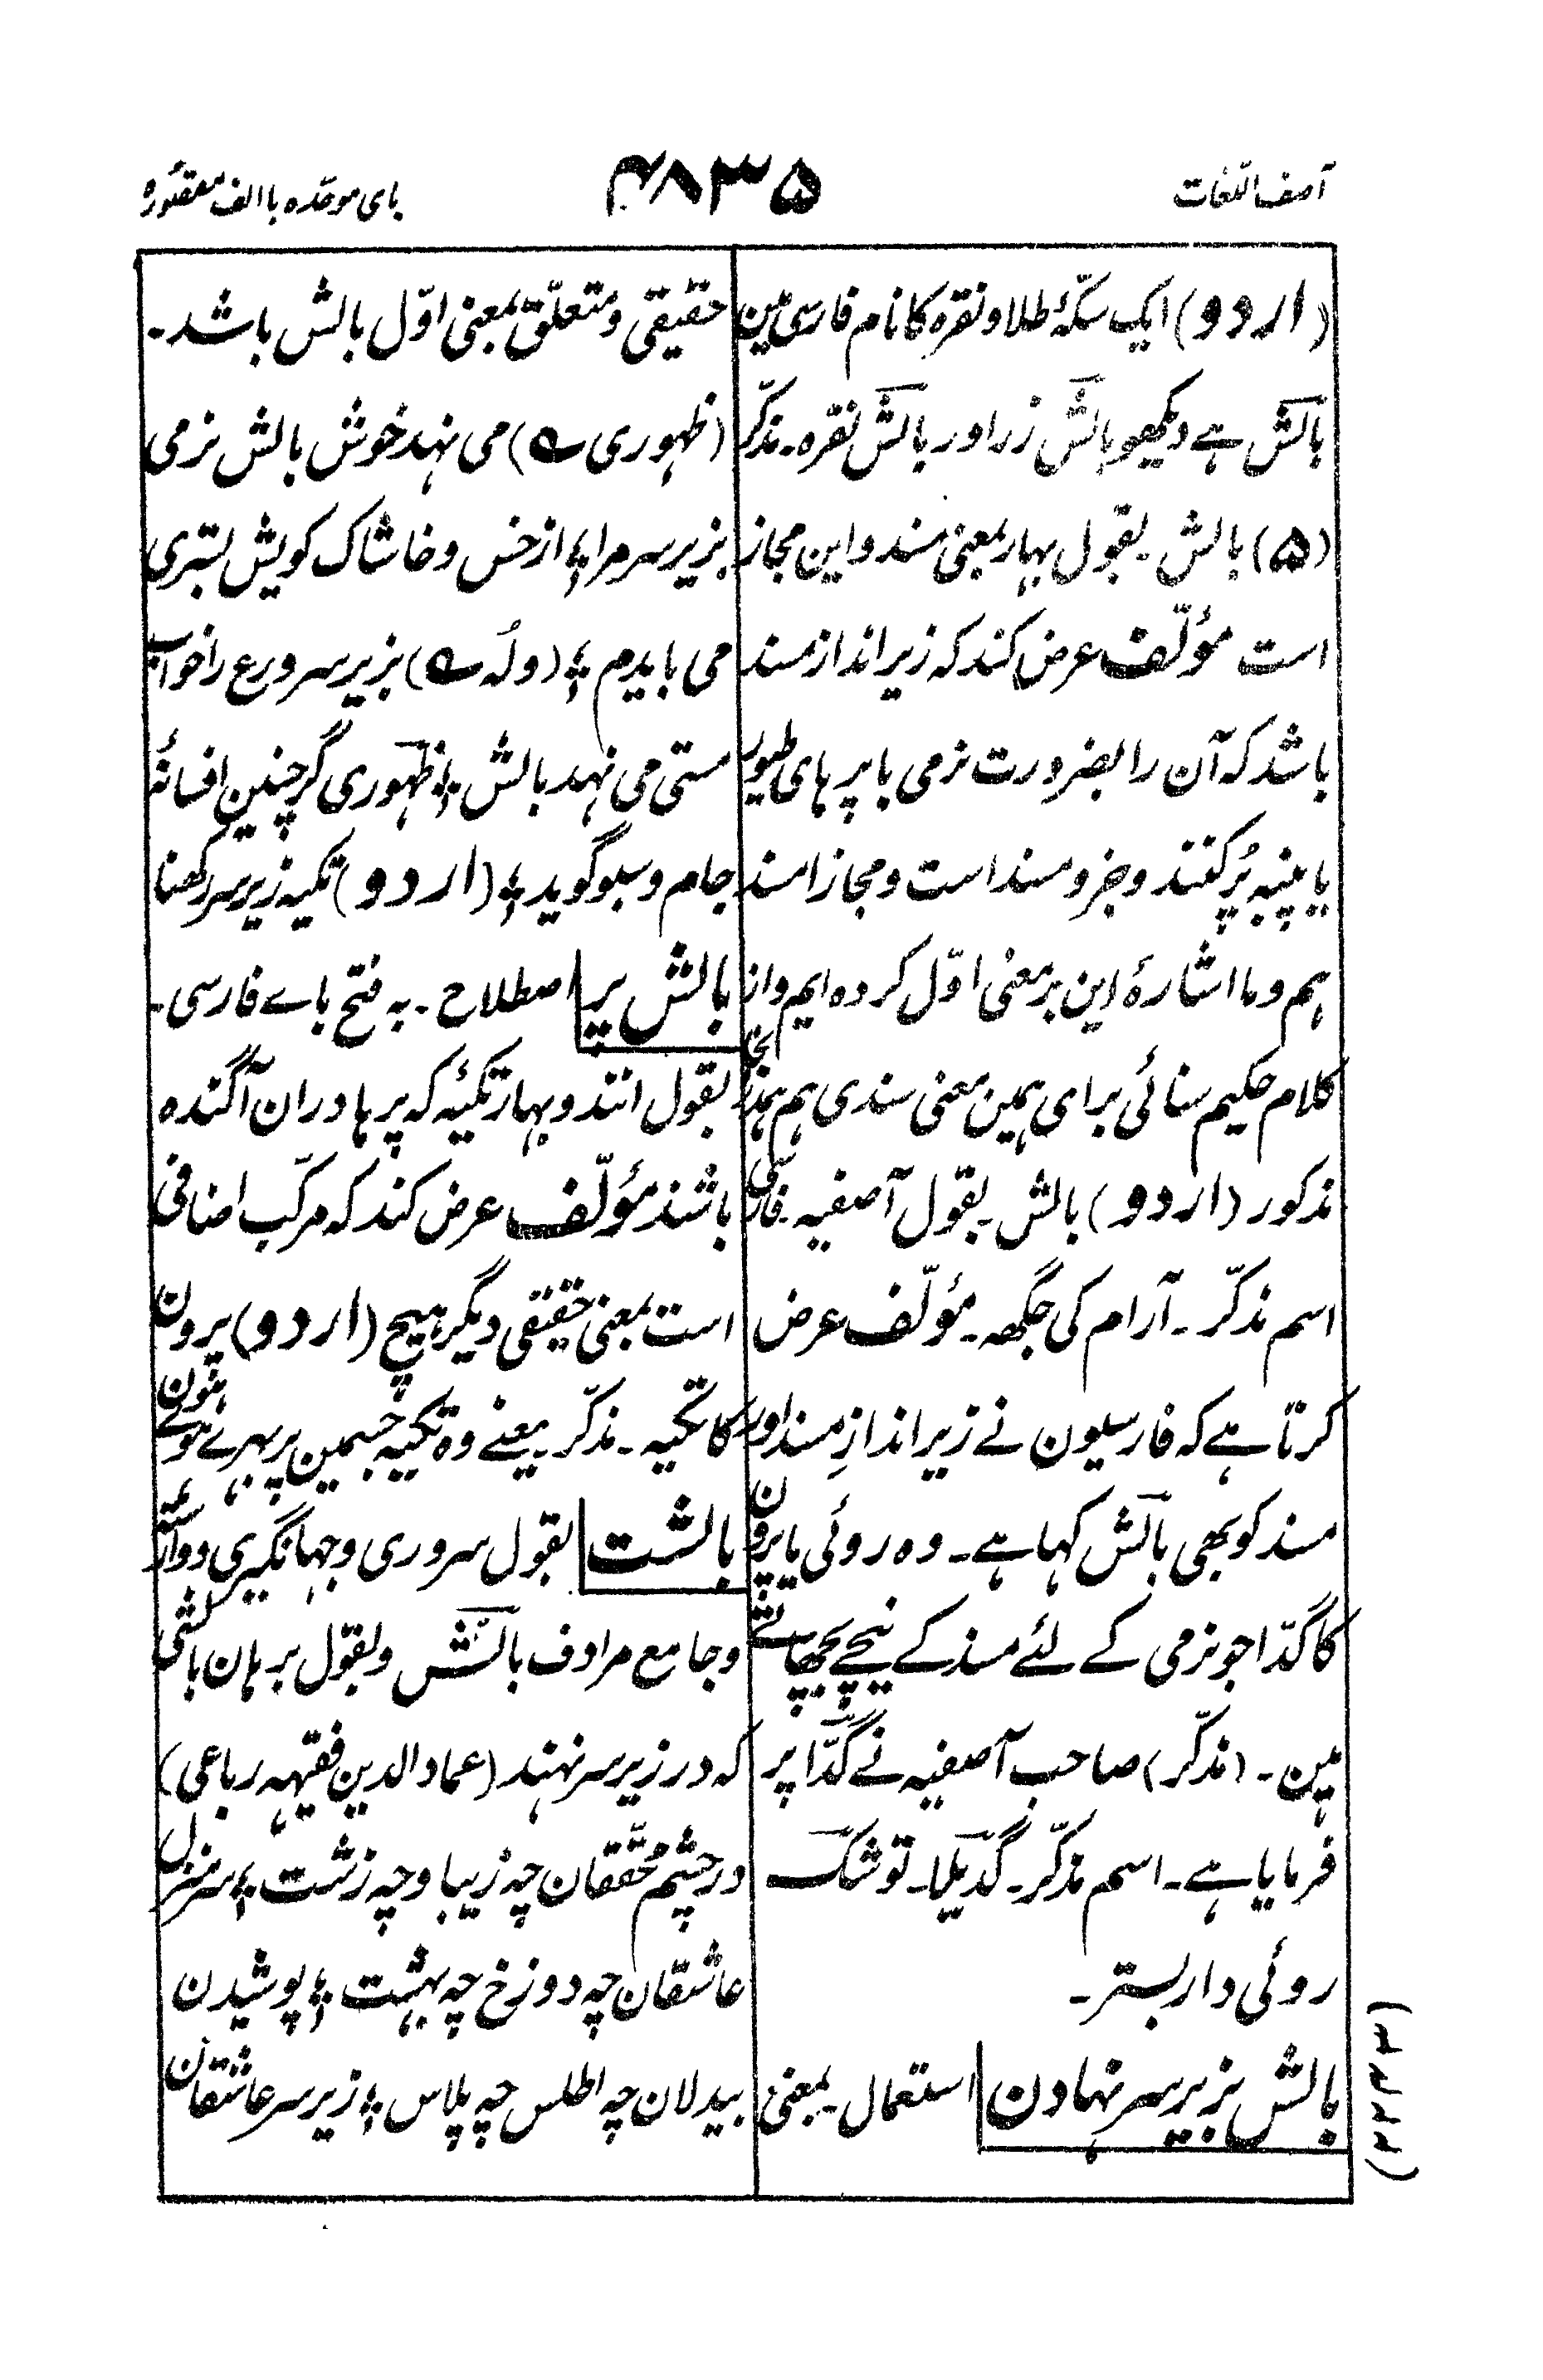 آصف اللّغات
۴۸۳۵
بای موحّدہ باالف مقصُورہ
(اردو) ایک سکّۂ طلا و نقرہ کا نام فارسی مین
بالش ہے دیکھو بالش زر اور بالش نقرہ۔ مذکّر
(۵) بالش۔ بقول بہار بمعنی مسند و این مجاز
است مؤلّف عرض کند کہ زیر انداز مسند
باشد کہ آن را بضرورت نرمی با پر ہای طیور
یا پنبہ پُر کنند و جزو مسند است و مجازاً مسند
ہم و ما اشارۂ این بر معنی اوّل کردہ ایم و از
کلام حکیم سنائی برای ہمین معنی سندی ہم ہمدرانجا
مذکور (اردو) بالش بقول آصفیہ۔ فارسی
اسم مذکّر۔ آرام کی جگھہ۔ مؤلّف عرض
کرتا ہے کہ فارسیون نے زیر اندازِ مسند اور
مسند کو بھی بالش کہا ہے۔ وہ روئی یا پرون
کا گدّا جو نرمی کے لئے مسند کے نیچے بچھاتے
ہین۔ (مذکّر) صاحب آصفیہ نے گدّا پر
فرمایا ہے۔ اسم مذکّر۔ گدیلا۔ توشک
روئی دار بستر۔
بالش بزیر سر نہادن استعمال۔ بمعنی
حقیقی و متعلّق بمعنی اوّل بالش باشد۔
(ظہوری ؎) می نہد خوش بالش نرمی
بزیر سر مرا ؛ از خس و خاشاک کویش بستری
می بایدم ؛ (ولہٗ ؎) بزیر سر ورع را خواب
مستی می نہد بالش ؛ ظہوری گر چنین افسانۂ
جام و سبو گوید ؛ (اردو) تکیہ زیر سر رکھنا
بالش پر اصطلاح۔ بہ فتح بای فارسی۔
بقول انند و بہار تکیۂ کہ پر ہا در ان آگندہ
باشند مؤلّف عرض کند کہ مرکّب اضافی
است بمعنی حقیقی دیگر ہیچ (اردو) پرون
کا تکیہ۔ مذکّر۔ یعنے وہ تکیہ جسمین پر بہرے ہوئے ہون
بالشت بقول سروری و جہانگیری و وارستہ
و جامع مرادف بالش و بقول برہان بالشی
کہ در زیر سر نہند (عماد الدین فقیہہ رباعی)
در چشم محقّقان چہ زیبا و چہ زشت ؛ سر منزل
عاشقان چہ دوزخ چہ بہشت ؛ پوشیدن
بیدلان چہ اطلس چہ پلاس ؛ زیر سر عاشقان